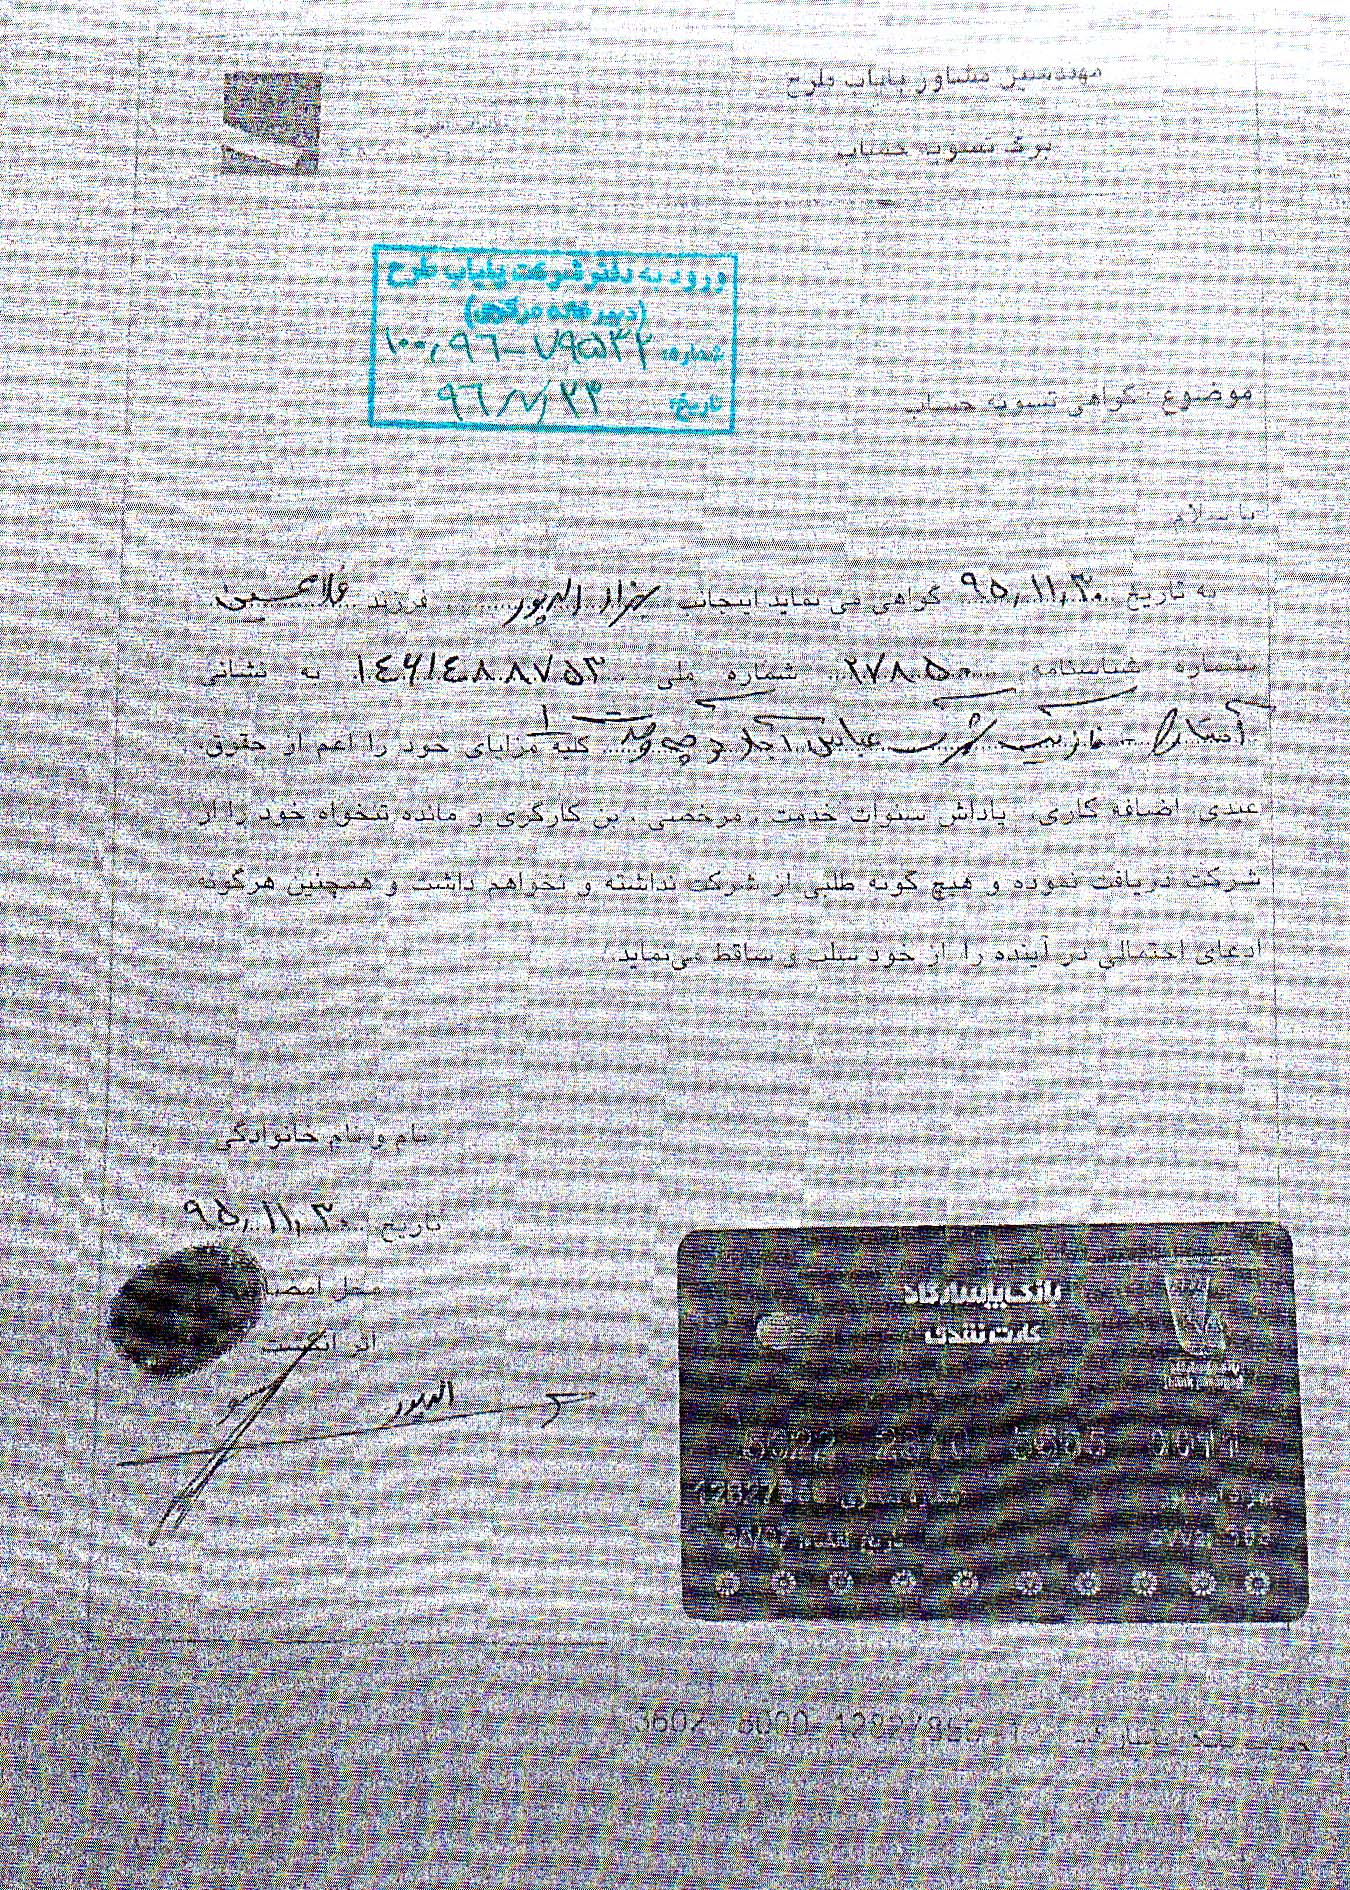 مهندسین مشاور پایاب طرح
برگ تسویه حساب
ورود به دفتر شرکت پایاب طرح
(دبیرخانه مرکزی)
شماره: ۱۰۰٫۹۶-۷۹۵۳۲
تاریخ: ۹۶/۷/۲۳
موضوع: گواهی تسویه حساب
با سلام
به تاریخ ۹۵٫۱۱٫۳۰ گواهی می نماید اینجانب بهزاد الهپور فرزند غلامحسین
بشماره شناسنامه ۲۷۸۵۰ شماره ملی ۱۴۶۱۴۸۸۷۵۳ به نشانی
آستارا - عباس آباد کلیه مزایای خود را اعم از حقوق
عیدی، اضافه کاری، پاداش سنوات خدمت، مرخصی، بن کارگری و مانده تنخواه خود را از
شرکت دریافت نموده و هیچ گونه طلبی از شرکت نداشته و نخواهد داشت و همچنین هرگونه
ادعای احتمالی در آینده را از خود سلب و ساقط می‌نماید.
نام و نام خانوادگی
تاریخ ۹۵٫۱۱٫۳۰
محل امضا
اثر انگشت
الهپور
بانک پاسارگاد
کارت نقدی